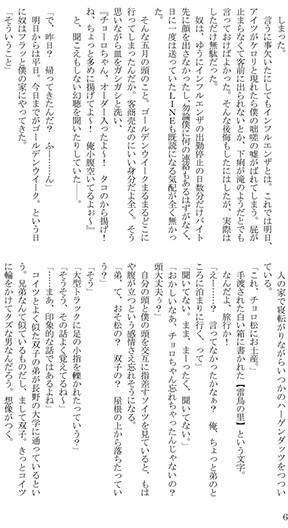 しまった。
言うに事欠いたにしてもインフルエンザとは。これでは明日、
アイツがケロリと現れたら僕の咄嗟の嘘がばれてしまう。屁が
止まらなくて客前に出られないとか、下痢が滝のようだとでも
言っておけばよかった。そんな後悔もしたにはしたが、実際は
しただけ無駄だった。
奴は、ゆうにインフルエンザの出勤停止の日数分だけバイト
先に顔を出さなかったし、勿論僕に何の連絡もあるはずがなく、
日に一度は送っていたLINEも既読になる気配が全く無かっ
た。
そんな五月の頭のこと。ゴールデンウイークまるまるどこに
行ってしまったんだか、客商売なのにいい身分だよ全く。そう
思いながら皿をガンガンと洗い、
『チョーロちゃん、オーダー入ったよ～！　タコのから揚げ！
ね、ちょっと多めに揚げてよ～！　俺小腹空いてるよぉ～』
と、聞こえもしない幻聴を聞いたりしていた――。
「で、昨日？　帰ってきたんだ？　ふ――ん」
明日からは平日。今日までがゴールデンウイーク。という日
に奴はフラっと僕の家にやってきた。
「そういうこと」
人の家で寝転がりながらいつかのハーゲンダッツをつついて
いる。
「これ、チョロ松にお土産」
手渡された白い箱に書かれた【雷鳥の里】という文字。
「なんだよ、旅行か！」
「え――……？　言ってなかったかなぁ？　俺、ちょっと弟のと
ころに泊まりに行く、って」
「聞いてない。まま、まーったく、聞いてない」
「おかしいなあ、チョロちゃん忘れちゃったんじゃないの？
頭大丈夫？」
自分の頭と僕の頭を交互に指差すソイツを見ていると、もは
や腹が立つという感情さえ忘れそうになる。
「弟、て、おそ松の？　双子の？　屋根の上から落ちたってい
う？」
「そう」
「大型トラックに足の小指を轢かれたっていう？」
「そうそう、その話よく覚えてるね～」
「……まあ、印象的な話ではあるよね」
コイツとよく似た双子の弟が長野の大学に通っているとい
う。兄弟なんて似ているものだし、まして双子。きっとコイツ
に輪をかけてクズな男なんだろう。想像がつく。
6